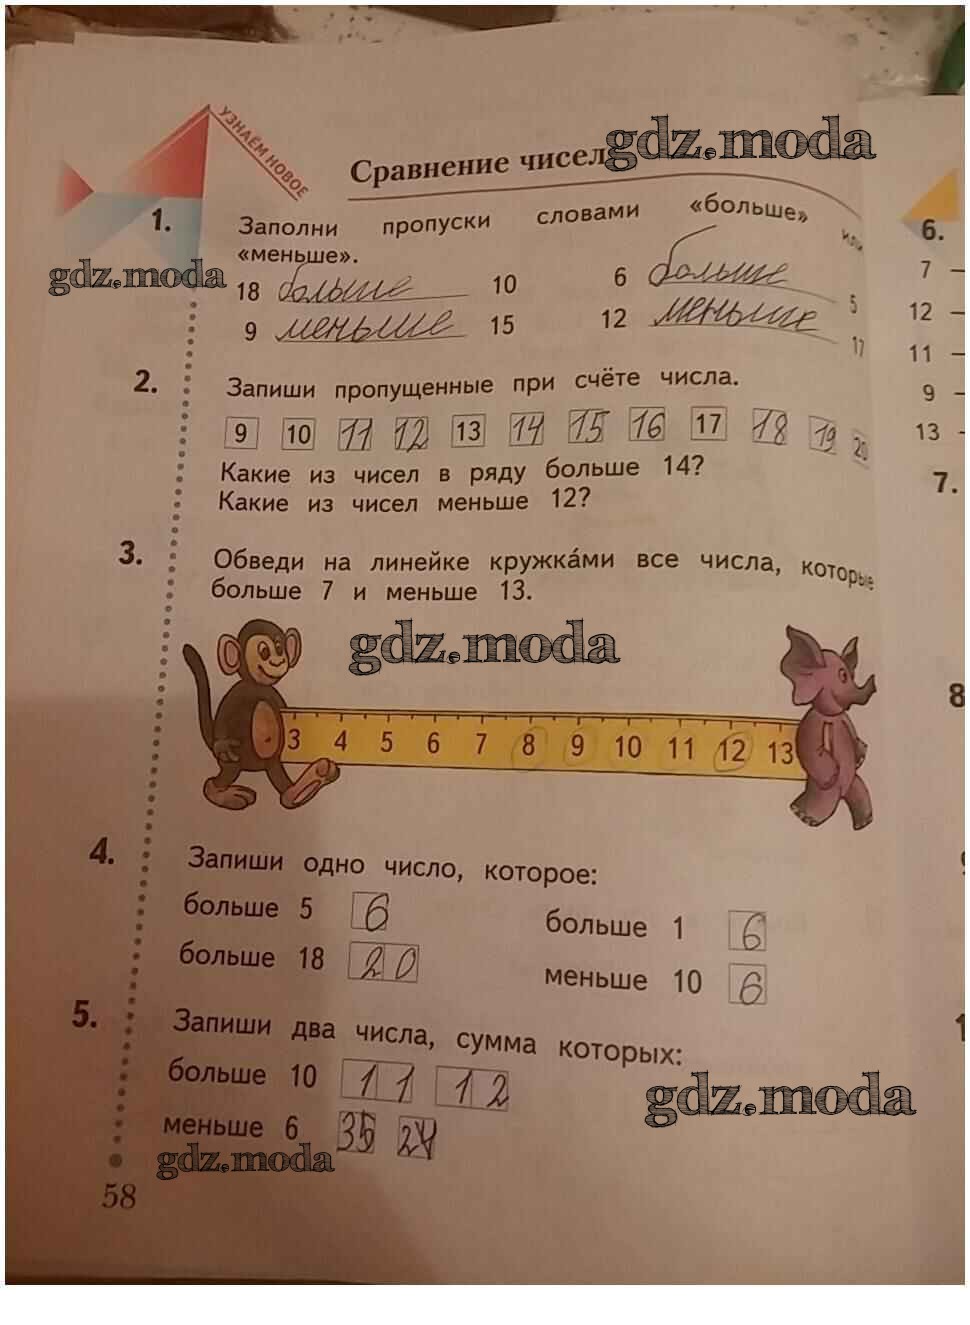 УЗНАЁМ НОВОЕ
Сравнение чисел
gdz.moda
1. Заполни пропуски словами «больше» или
«меньше».
gdz.moda
18 больше 10 6 больше 5
9 меньше 15 12 меньше 17
2. Запиши пропущенные при счёте числа.
9 10 11 12 13 14 15 16 17 18 19 20
Какие из чисел в ряду больше 14?
Какие из чисел меньше 12?
3. Обведи на линейке кружка́ми все числа, которые
больше 7 и меньше 13.
gdz.moda
3 4 5 6 7 8 9 10 11 12 13
4. Запиши одно число, которое:
больше 5 6 больше 1 6
больше 18 20 меньше 10 6
5. Запиши два числа, сумма которых:
больше 10 11 12
gdz.moda
меньше 6
gdz.moda
58
6.
7 –
12 –
11 –
9 –
13 -
7.
8